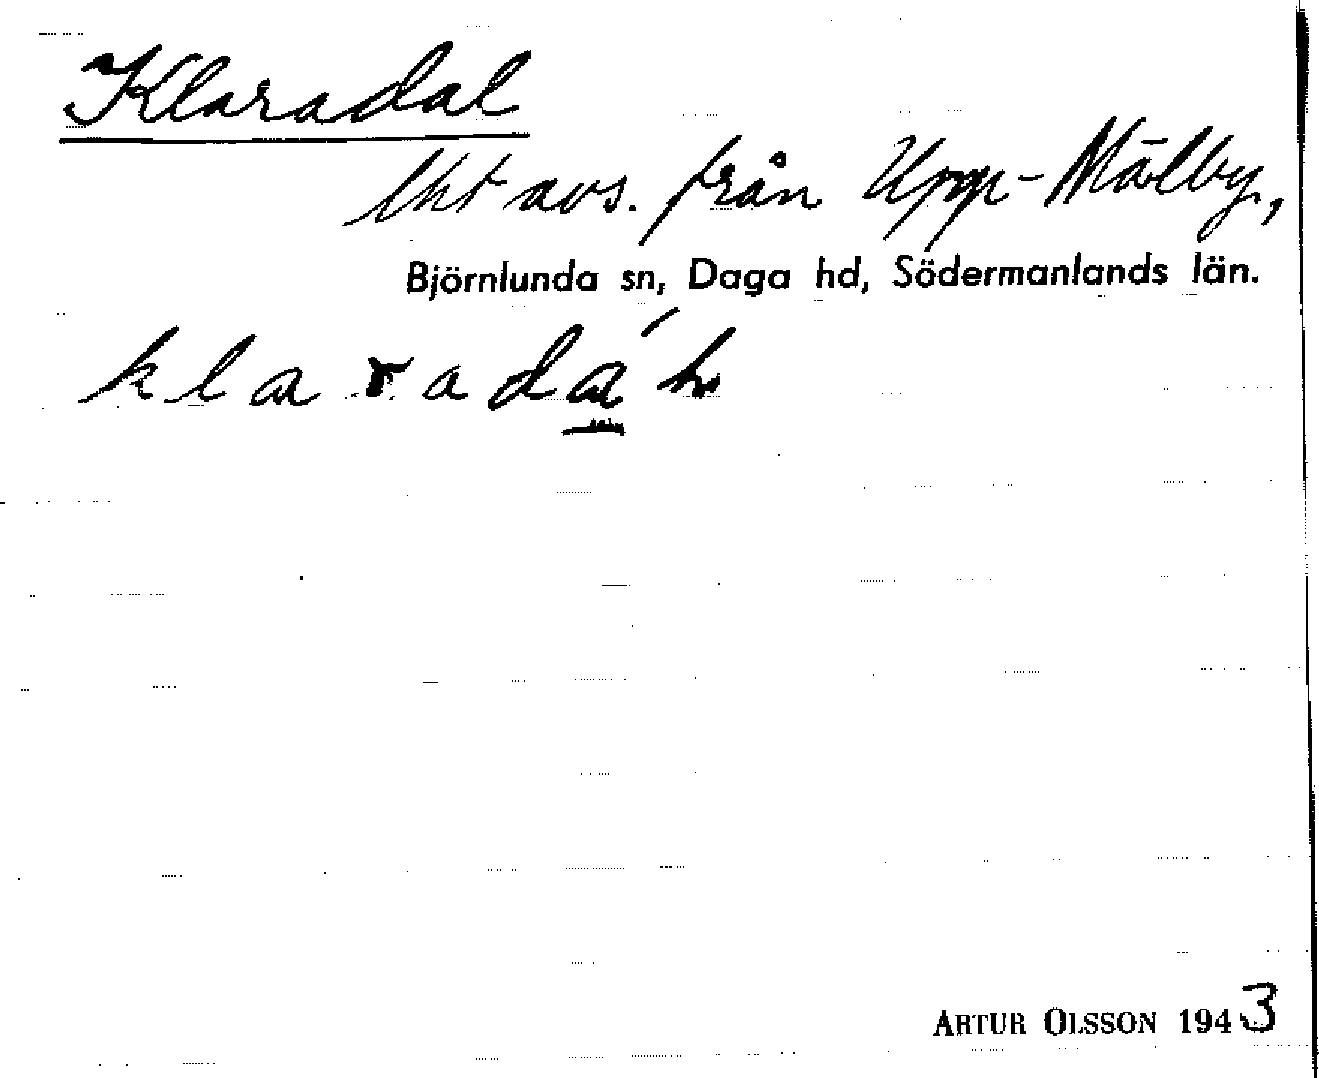 Klaradal
lht avs. från Upp-Mälby,
Björnlunda sn, Daga hd, Södermanlands län.
klaradá
ARTUR OLSSON 1943